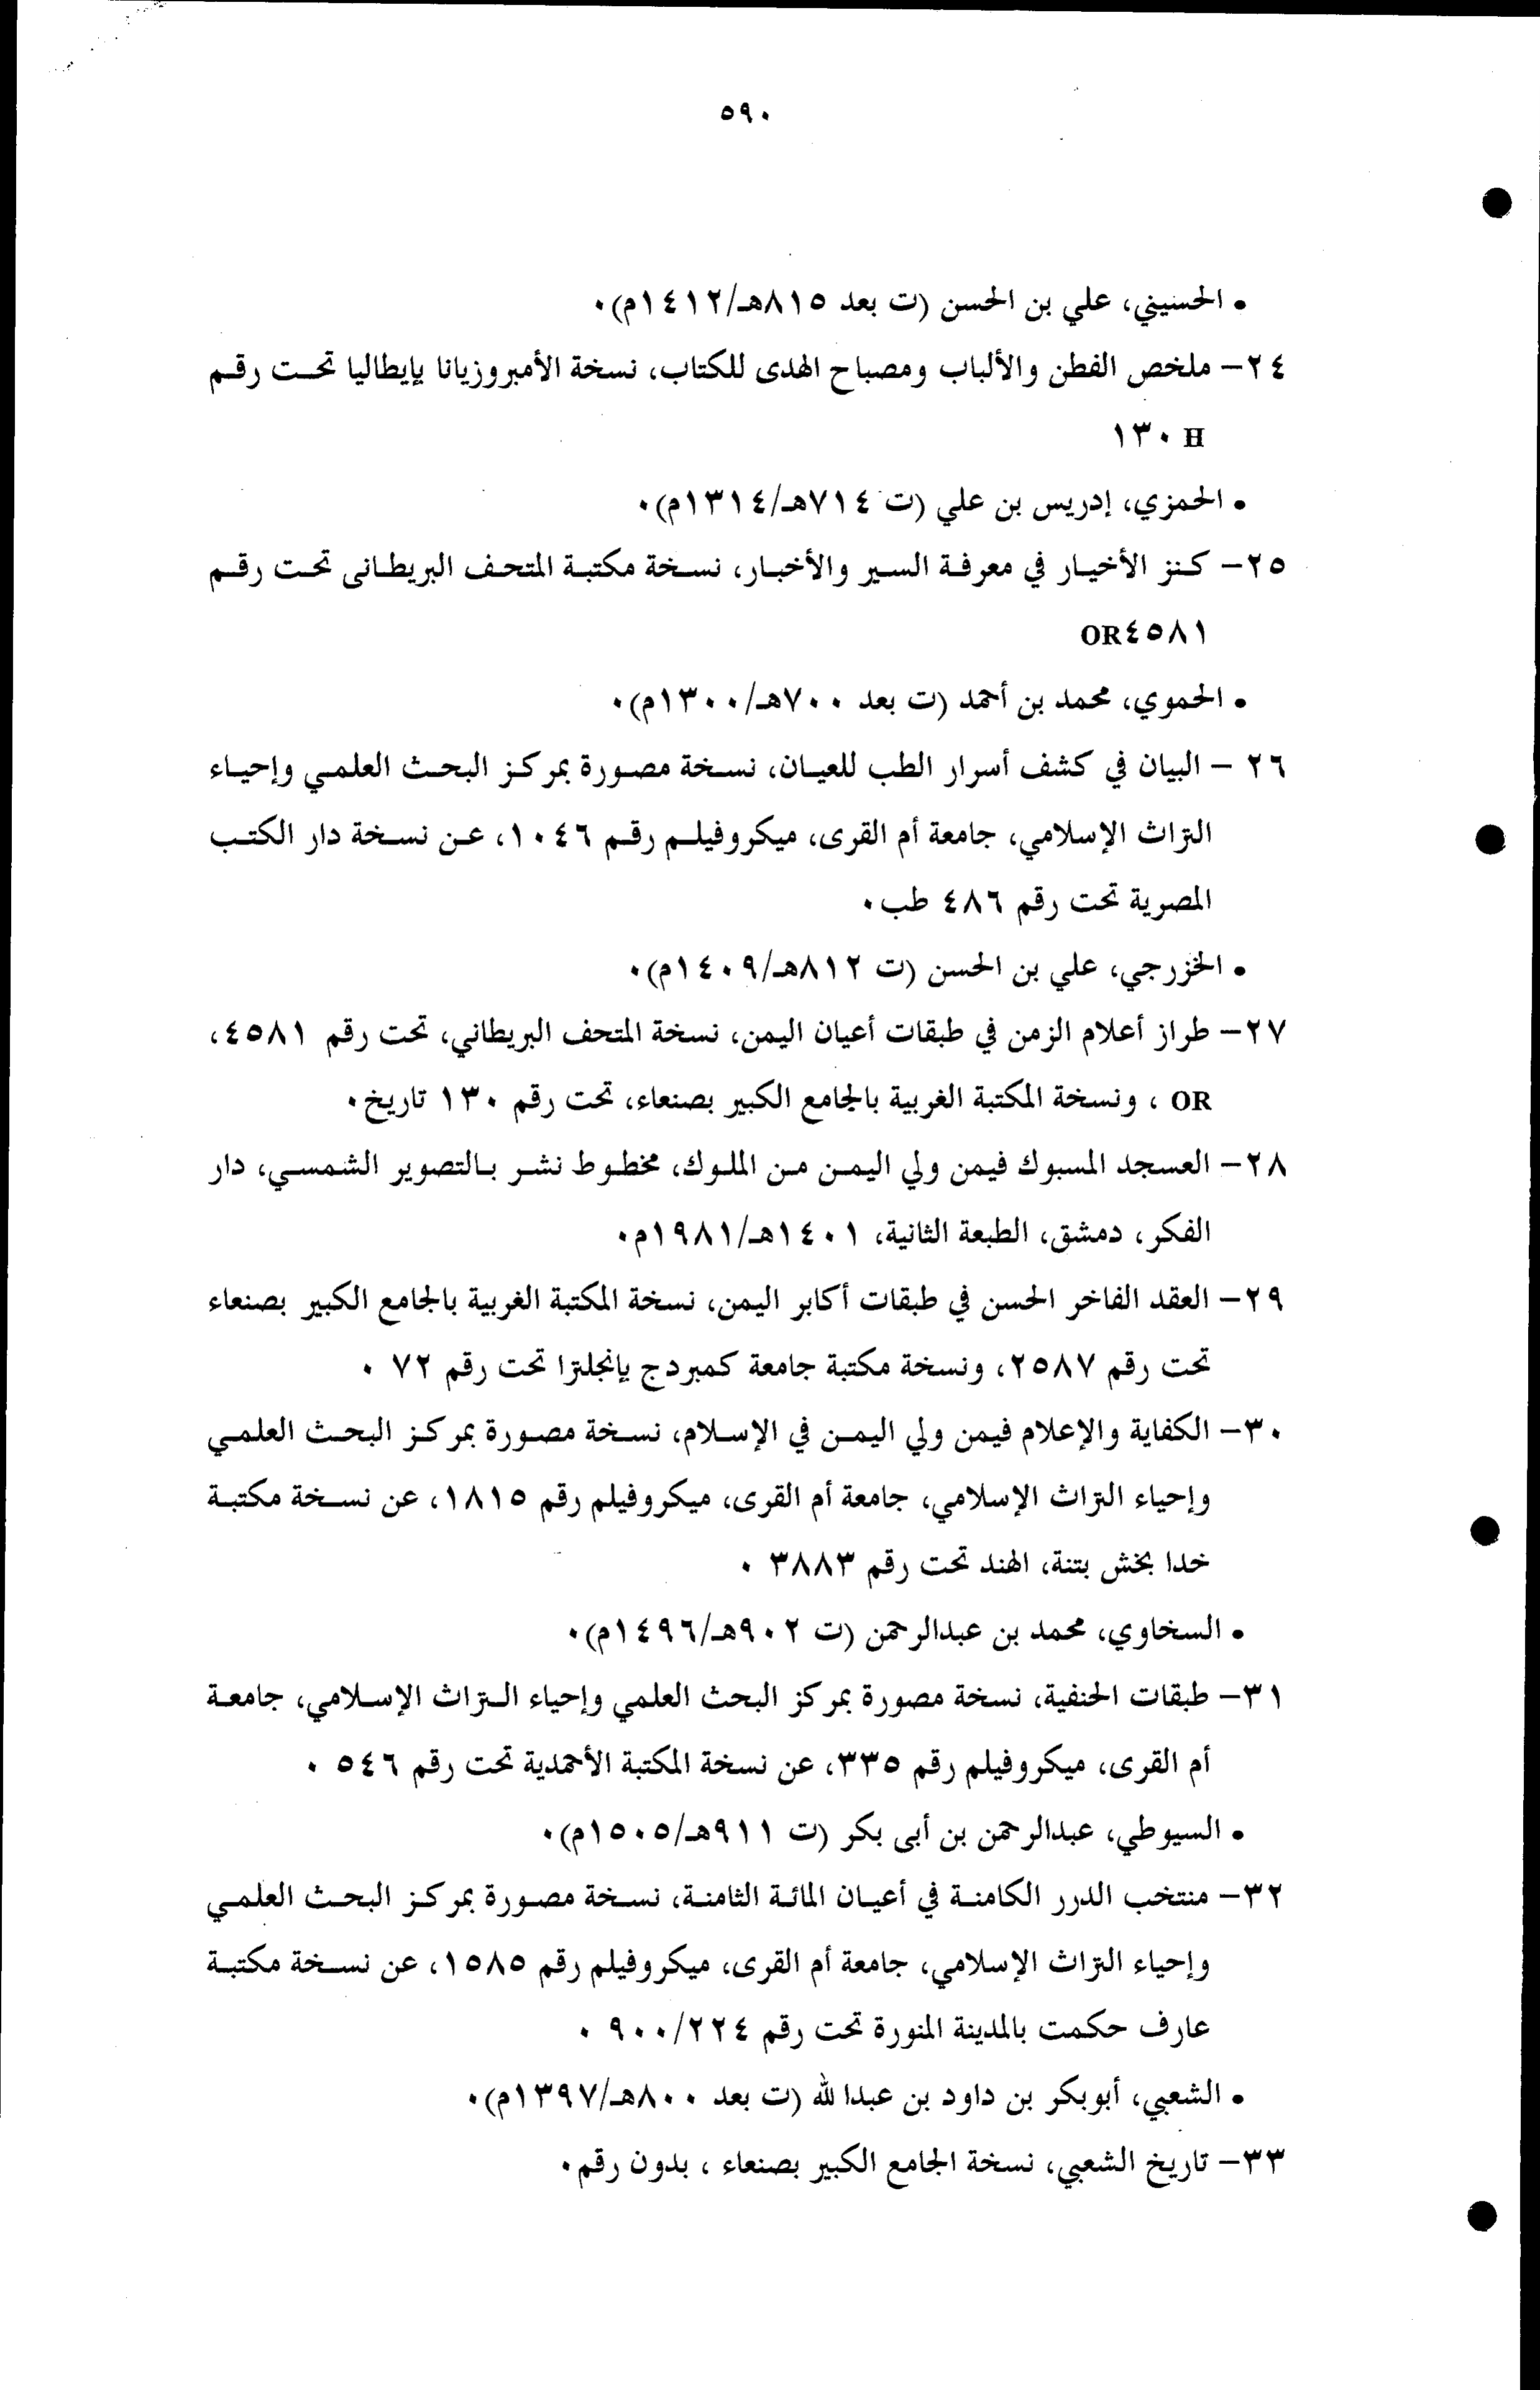 ٥٩٠
• الحسيني، علي بن الحسن (ت بعد ٨١٥هـ/١٤١٢م)٠
٢٤- ملخص الفطن والألباب ومصباح الهدى للكتاب، نسخة الأمبروزيانا بإيطاليا تحت رقم
H ١٣٠
• الحمزي، إدريس بن علي (ت ٧١٤هـ/١٣١٤م)٠
٢٥- كنز الأخيار في معرفة السير والأخبار، نسخة مكتبة المتحف البريطانى تحت رقم
OR٤٥٨١
• الحموي، محمد بن أحمد (ت بعد ٧٠٠هـ/١٣٠٠م)٠
٢٦ - البيان في كشف أسرار الطب للعيان، نسخة مصورة بمركز البحث العلمي وإحياء
التراث الإسلامي، جامعة أم القرى، ميكروفيلم رقم ١٠٤٦، عن نسخة دار الكتب
المصرية تحت رقم ٤٨٦ طب٠
• الخزرجي، علي بن الحسن (ت ٨١٢هـ/١٤٠٩م)٠
٢٧- طراز أعلام الزمن في طبقات أعيان اليمن، نسخة المتحف البريطاني، تحت رقم ٤٥٨١،
OR ، ونسخة المكتبة الغربية بالجامع الكبير بصنعاء، تحت رقم ١٣٠ تاريخ٠
٢٨- العسجد المسبوك فيمن ولي اليمن من الملوك، مخطوط نشر بالتصوير الشمسي، دار
الفكر، دمشق، الطبعة الثانية، ١٤٠١هـ/١٩٨١م٠
٢٩- العقد الفاخر الحسن في طبقات أكابر اليمن، نسخة المكتبة الغربية بالجامع الكبير بصنعاء
تحت رقم ٢٥٨٧، ونسخة مكتبة جامعة كمبردج بإنجلترا تحت رقم ٧٢ ٠
٣٠- الكفاية والإعلام فيمن ولي اليمن في الإسلام، نسخة مصورة بمركز البحث العلمي
وإحياء التراث الإسلامي، جامعة أم القرى، ميكروفيلم رقم ١٨١٥، عن نسخة مكتبة
خدا بخش بتنة، الهند تحت رقم ٣٨٨٣ ٠
• السخاوي، محمد بن عبدالرحمن (ت ٩٠٢هـ/١٤٩٦م)٠
٣١- طبقات الحنفية، نسخة مصورة بمركز البحث العلمي وإحياء التراث الإسلامي، جامعة
أم القرى، ميكروفيلم رقم ٣٣٥، عن نسخة المكتبة الأحمدية تحت رقم ٥٤٦ ٠
• السيوطي، عبدالرحمن بن أبى بكر (ت ٩١١هـ/١٥٠٥م)٠
٣٢- منتخب الدرر الكامنة في أعيان المائة الثامنة، نسخة مصورة بمركز البحث العلمي
وإحياء التراث الإسلامي، جامعة أم القرى، ميكروفيلم رقم ١٥٨٥، عن نسخة مكتبة
عارف حكمت بالمدينة المنورة تحت رقم ٩٠٠/٢٢٤ ٠
• الشعبي، أبوبكر بن داود بن عبدالله (ت بعد ٨٠٠هـ/١٣٩٧م)٠
٣٣- تاريخ الشعبي، نسخة الجامع الكبير بصنعاء ، بدون رقم٠